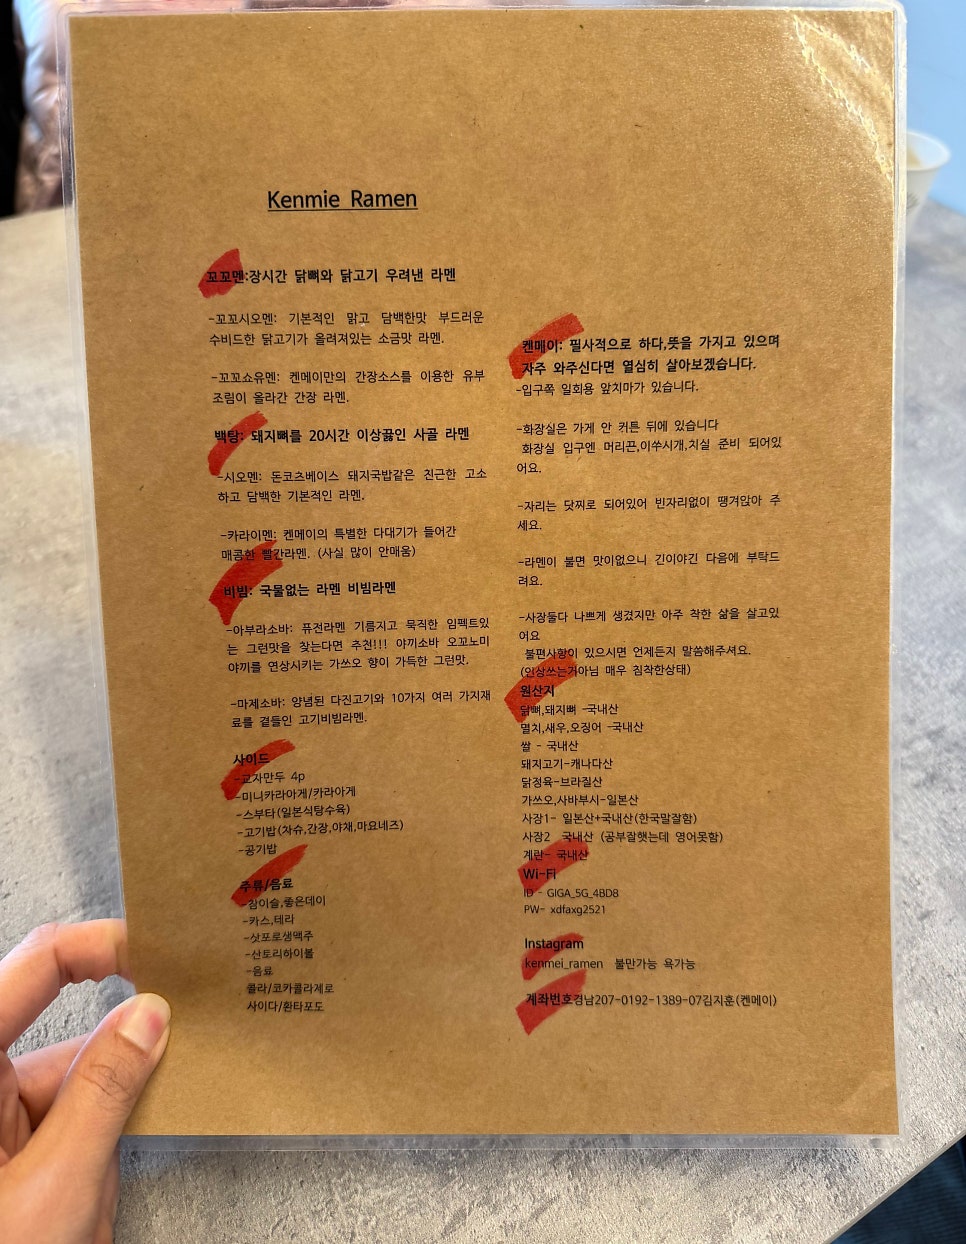 Kenmie Ramen
꼬꼬멘:장시간 닭뼈와 닭고기 우려낸 라멘
-꼬꼬시오멘: 기본적인 맑고 담백한맛 부드러운
수비드한 닭고기가 올려져있는 소금맛 라멘.
-꼬꼬쇼유멘: 켄메이만의 간장소스를 이용한 유부
조림이 올라간 간장 라멘.
백탕: 돼지뼈를 20시간 이상끓인 사골 라멘
-시오멘: 돈코츠베이스 돼지국밥같은 친근한 고소
하고 담백한 기본적인 라멘.
-카라이멘: 켄메이의 특별한 다대기가 들어간
매콤한 빨간라멘. (사실 많이 안매움)
비빔: 국물없는 라멘 비빔라멘
-아부라소바: 퓨전라멘 기름지고 묵직한 임펙트있
는 그런맛을 찾는다면 추천!!! 야끼소바 오꼬노미
야끼를 연상시키는 가쓰오 향이 가득한 그런맛.
-마제소바: 양념된 다진고기와 10가지 여러 가지재
료를 곁들인 고기비빔라멘.
사이드
-교자만두 4p
-미니카라아게/카라아게
-스부타(일본식탕수육)
-고기밥(차슈,간장,야채,마요네즈)
-공기밥
주류/음료
-참이슬,좋은데이
-카스,테라
-삿포로생맥주
-산토리하이볼
-음료
콜라/코카콜라제로
사이다/환타포도
켄메이: 필사적으로 하다,뜻을 가지고 있으며
자주 와주신다면 열심히 살아보겠습니다.
-입구쪽 일회용 앞치마가 있습니다.
-화장실은 가게 안 커튼 뒤에 있습니다
화장실 입구엔 머리끈,이쑤시개,치실 준비 되어있
어요.
-자리는 닷찌로 되어있어 빈자리없이 땡겨앉아 주
세요.
-라멘이 불면 맛이없으니 긴이야긴 다음에 부탁드
려요.
-사장둘다 나쁘게 생겼지만 아주 착한 삶을 살고있
어요
불편사항이 있으시면 언제든지 말씀해주셔요.
(인상쓰는거아님 매우 침착한상태)
원산지
닭뼈,돼지뼈 -국내산
멸치,새우,오징어 -국내산
쌀 - 국내산
돼지고기-캐나다산
닭정육-브라질산
가쓰오,사바부시-일본산
사장1- 일본산+국내산(한국말잘함)
사장2 국내산 (공부잘햇는데 영어못함)
계란- 국내산
Wi-Fi
ID - GIGA_5G_4BD8
PW- xdfaxg2521
Instagram
kenmei_ramen 불만가능 욕가능
계좌번호경남207-0192-1389-07김지훈(켄메이)